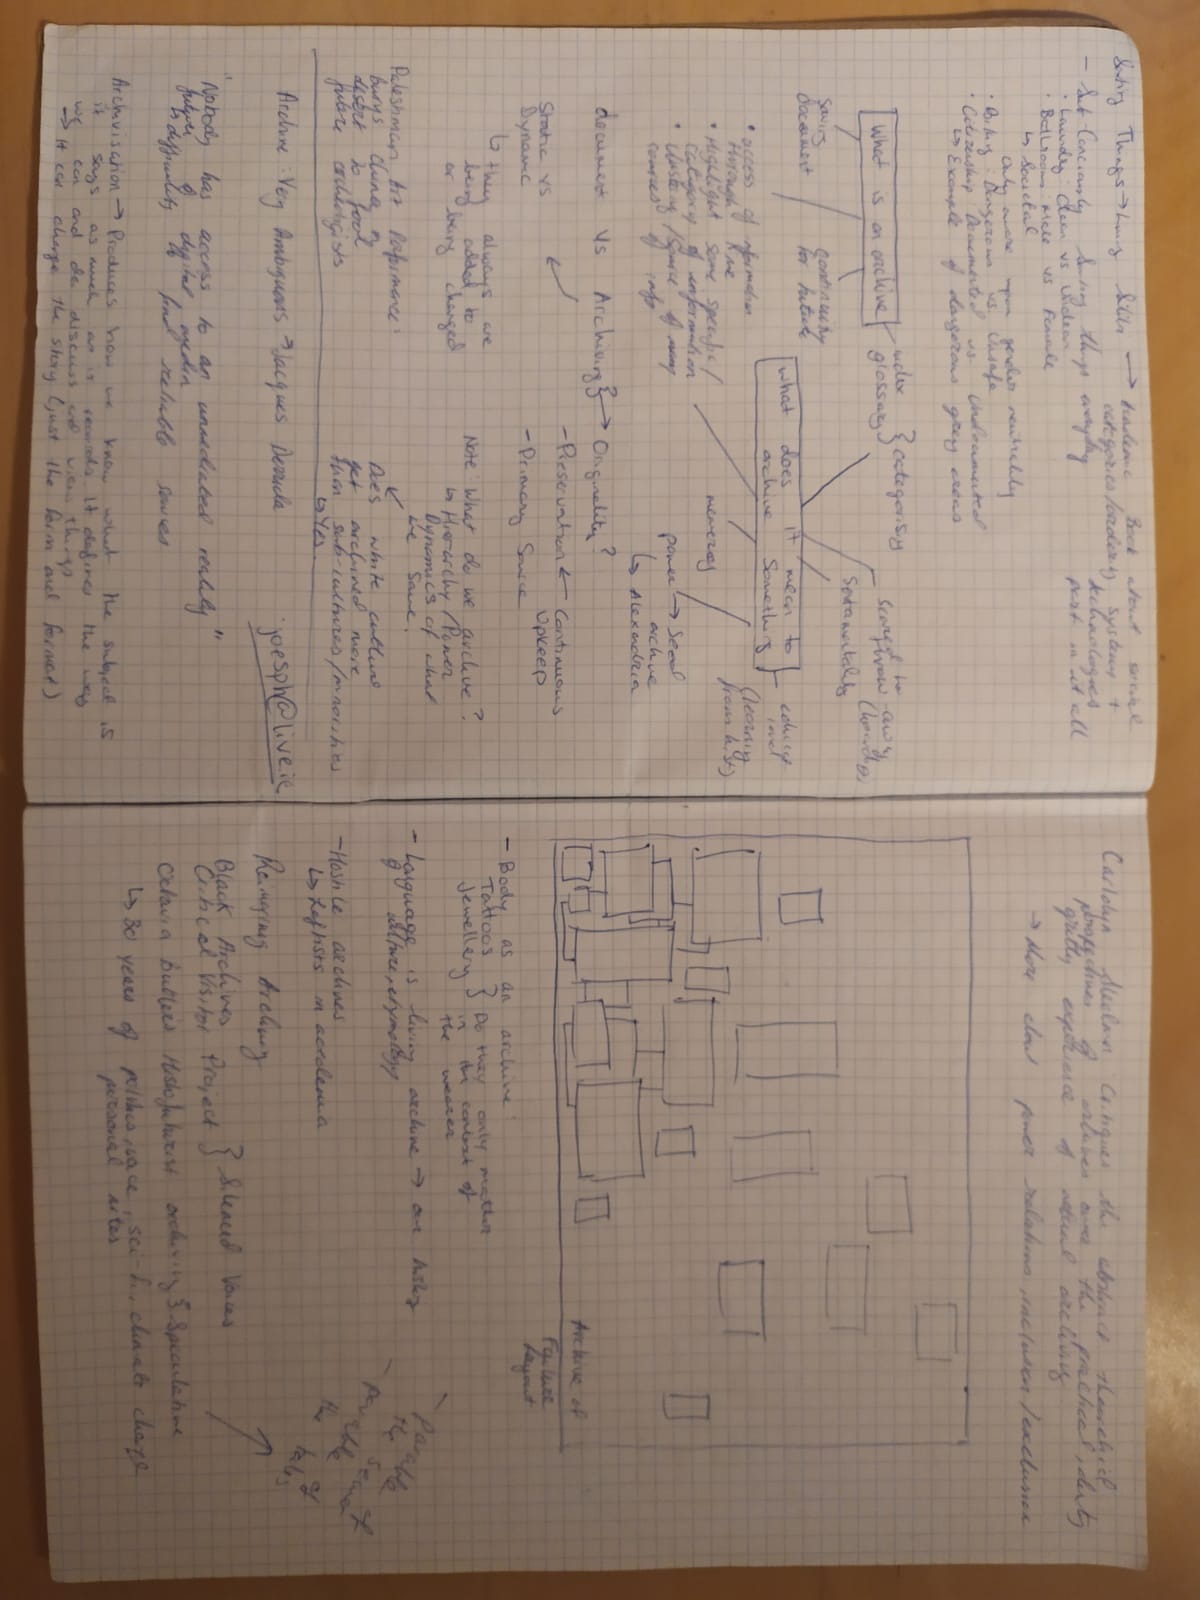 Sorting Things → Living
→ Academic Book about social
categories/ordering systems +
technologies
part in it all
- Sub-Conciously Sorting things everyday
• Laundry: Clean vs Unclean
• Bathrooms: Male vs Female
↳ Societal
Only aware upon gender neutrality
• Dangerous vs. Unsafe
• Citizenship Documented vs Undocumented
↳ Example of dangerous grey areas
What is an archive
index
glossary } categorisiy
saving
document
continuity
for future
scared to
throw away
(hoarding)
Sentamentality
What does it mean to
archive Something
(learning
from hist)
• access of information
through time
• Highlight some specific/
category of information
• /Source of many
sources of info
memeroy
power → Seed
archive
↳ Alexandria
document vs Archiving } → Originality?
- Preservation ← Continuous
Upkeep
- Primary Source
Static vs
Dynamic
↳ they always are
being added to
or being changed
Note: What do we archive?
↳ Hierarchy/Power
Dynamics of what
we Save.
Does white culture
get archived more
than sub-cultures/minorities
↳ Yes.
Art Performance:
burys china in
desert to fool
future archeologists
Archive: Very Ambiguous → Jacques Derrida
joesph@live.ie
"Nobody has access to an unmediated reality"
future of digital media
↳ difficulity to find reliable sources
Archivisation → Produces how we know what the subject is
it says as much as is records. It defines the way
we can and do discuss and view things
→ It can change the story (just the form and format)
Critiques the abstract theoretical
perspectives of archives over the practical, dirty
gritty experience of actual archiving
→ More about power relations, inclusion/exclusion
Archive of
Failure
Layout
- Body as an archive:
Tattoos
Jewellery } Do they only matter
in the context of
the wearer
- Language is living archive → our history
of culture, etymology
- Hostile archives
↳ Leftists in acedemia
Reimagining Archiving
Black Archives
Critical Visitor Project } Silenced Voices
Octavia Butlers Histofuturist archiving } Speculative
↳ 30 years of politics, race, sci-fi, climate change
personal notes
- Parable of
the Sower
- parable of
the tales